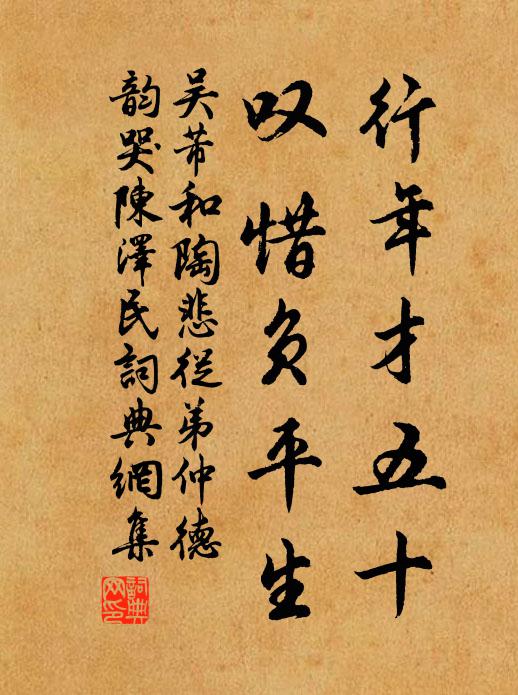 行年才五十
叹惜负平生
吴芾和陶悲從弟仲德
韵哭陳澤民詞典網集
詞典网印